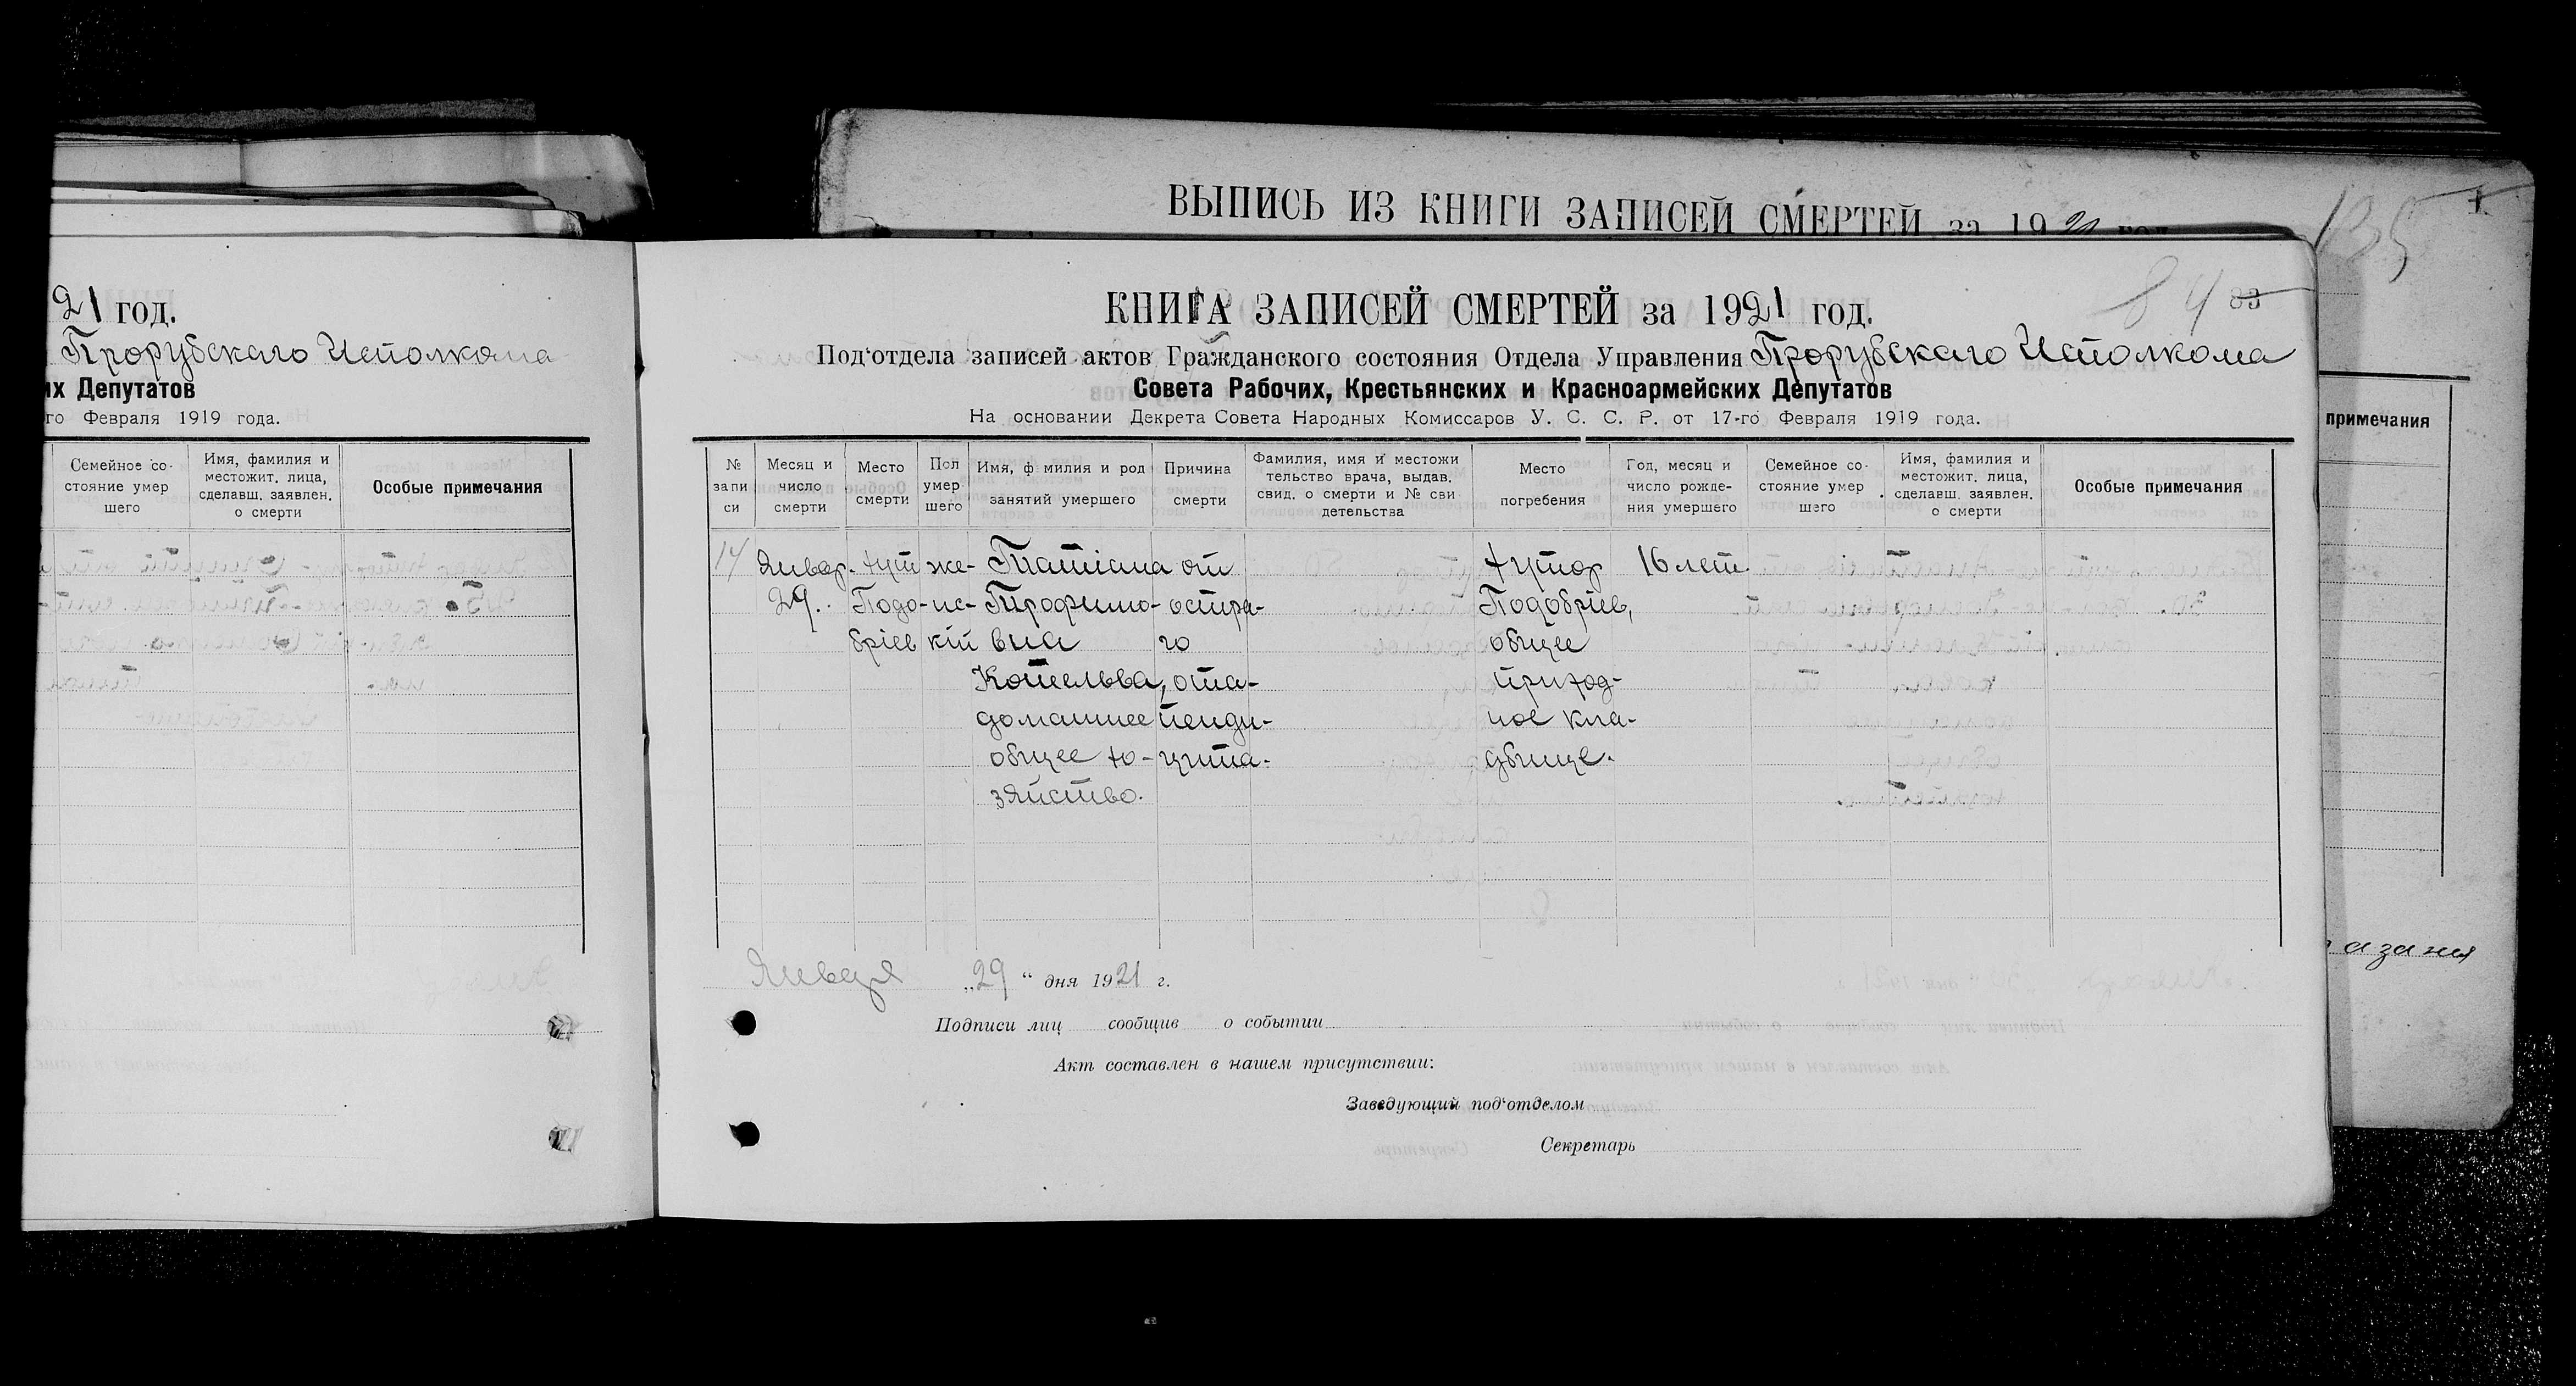 ВЫПИСЬ ИЗ КНИГИ ЗАПИСЕЙ СМЕРТЕЙ за 19 год
135
21 год.
Прорубскаго Исполкома
их Депутатов
го Февраля 1919 года.
Семейное со-
стояние умер
шего
Имя, фамилия и
местожит. лица,
сделавш. заявлен.
о смерти
Особые примечания
84 83
КНИГА ЗАПИСЕЙ СМЕРТЕЙ за 1921 год.
Под'отдела записей актов Гражданского состояния Отдела Управления Прорубскаго Исполкома
Совета Рабочих, Крестьянских и Красноармейских Депутатов
На основании Декрета Совета Народных Комиссаров У. С. С. Р. от 17-го Февраля 1919 года.
№
запи
си
Месяц и
число
смерти
Место
смерти
Пол
умер
шего
Имя, ф милия и род
занятий умершего
Причина
смерти
Фамилия, имя и местожи
тельство врача, выдав.
свид. о смерти и № сви
детельства
Место
погребения
Год, месяц и
число рожде-
ния умершего
Семейное со-
стояние умер
шего
Имя, фамилия и
местожит. лица,
сделавш. заявлен.
о смерти
Особые примечания
14
Январ.
29.
хут
Подо-
бріев
же-
нс-
кій
Татіана
Трофимо-
вна
Котельва,
домашнее
общее хо-
зяйство.
от
остра-
го
апендицита.
хутор
Подобріев,
общее
приход-
ное кла-
дбище.
16 лет.
Января „29“ дня 1921 г.
Подписи лиц сообщив о событии
Акт составлен в нашем присутствии:
Заведующий под'отделом
Секретарь
примечания